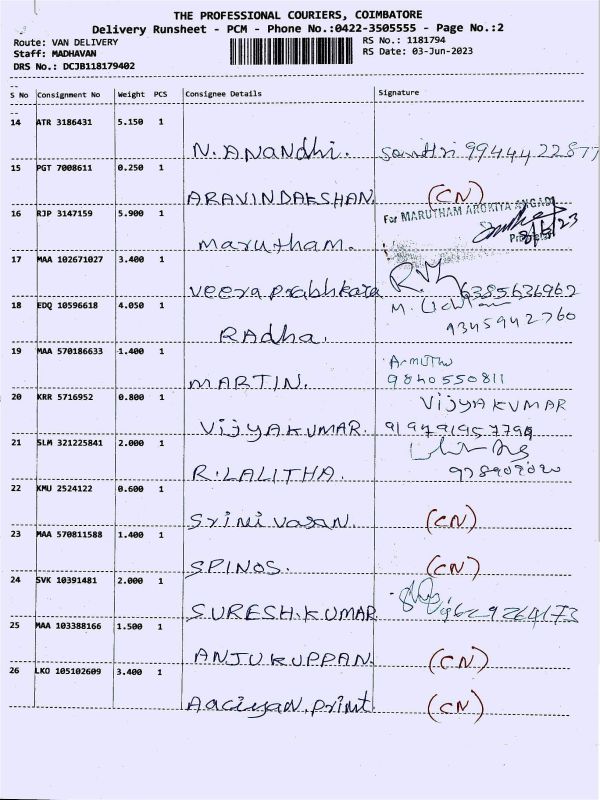 THE PROFESSIONAL COURIERS, COIMBATORE
Delivery Runsheet - PCM - Phone No.:0422-3505555 - Page No.:2
Route: VAN DELIVERY RS No.: 1181794
Staff: MADHAVAN RS Date: 03-Jun-2023
DRS No.: DCJB118179402
S No Consignment No Weight PCS Consignee Details Signature
14 ATR 3186431 5.150 1
N. ANandhi. 9944422877
15 PGT 7008611 0.250 1
ARAVINDAKSHAN. (CN)
16 RJP 3147159 5.900 1
For MARUTHAM AROKIYA ANGADI
Marutham.
17 MAA 102671027 3.400 1
Veera Prabhkara 6385636962
18 EDQ 10596618 4.050 1
RAdha. 9345942760
19 MAA 570186633 1.400 1
MARTIN. 9840550811
20 KRR 5716952 0.800 1
VIJYAKUMAR
VIJYAKUMAR.
21 SLM 321225841 2.000 1
R.LALITHA.
22 KMU 2524122 0.600 1
Srinivasan. (CN)
23 MAA 570811588 1.400 1
SPINOS. (CN)
24 SVK 10391481 2.000 1
SURESH.KUMAR
25 MAA 103388166 1.500 1
ANJUKUPPAN. (CN)
26 LKO 105102609 3.400 1
Aaciyan.print. (CN)